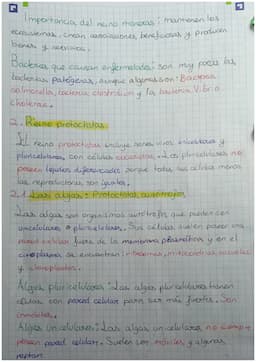 Importancia del reino moneras: mantienen los
ecosistemas, crean asociaciones beneficiosas y producen
bienes y servicios.
Bacterias que causan enfermedades: son muy pocas las
bacterias patógenas, aunque algunas son: Bacteria
salmonella, bacteria clostridium y la bacteria Vibrio
cholerae.
2. Reino protoctistas
El reino protoctistas incluye seres vivos unicelulares y
pluricelulares, con células eucariotas. Los pluricelulares no
poseen tejidos diferenciados porque todas sus células menos
las reproductoras son iguales.
2.1 Las algas: Protoctistas autótrofos
Las algas son organismos autótrofos que pueden ser
unicelulares o pluricelulares. Sus células suelen poseer una
pared celular fuera de la membrana plasmática y en el
citoplasma se encuentran ribosomas, mitocondrias, vacuolas
y cloroplastos.
Algas pluricelulares: Las algas pluricelulares tienen
células con pared celular para ser más fuertes. Son
inmóviles.
Algas unicelulares: Las algas unicelulares no siempre
poseen pared celular. Suelen ser móviles y algunas
reptan.